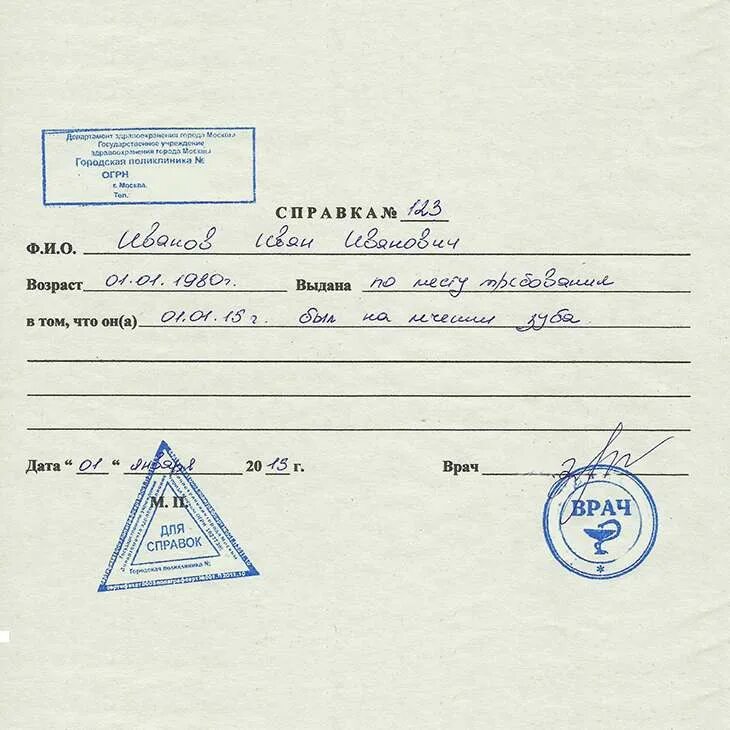 Департамент здравоохранения города Москвы
Государственное учреждение
здравоохранения города Москвы
Городская поликлиника №
ОГРН
г. Москва.
Тел.
СПРАВКА № 123
Ф.И.О. Иванов Иван Иванович
Возраст 01.01.1980г. Выдана по месту требования
в том, что он(а) 01.01.15 г. был на лечении зуба
Дата “ 01 “ января 2015 г. Врач
М. П.
ДЛЯ
СПРАВОК
Городская поликлиника №
ВРАЧ